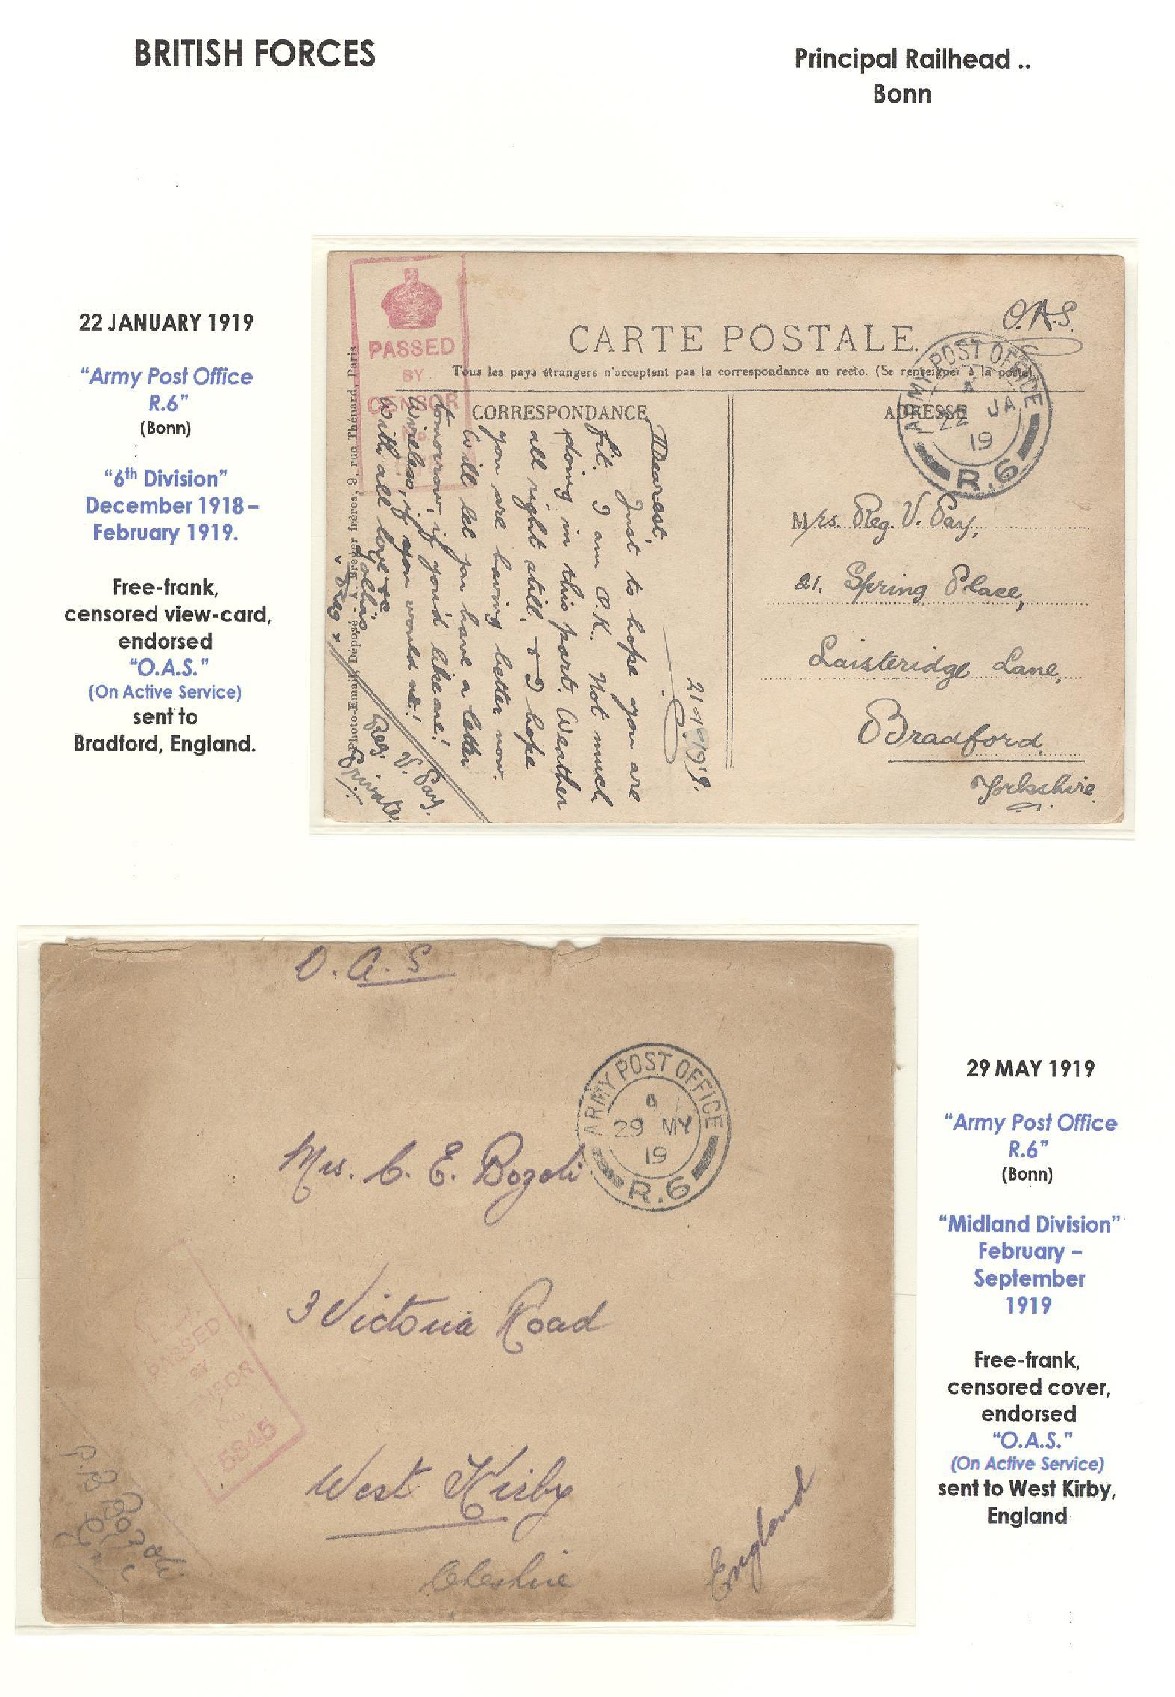 BRITISH FORCES
Principal Railhead ..
Bonn
22 JANUARY 1919
“Army Post Office
R.6”
(Bonn)
“6th Division”
December 1918–
February 1919.
Free-frank,
censored view-card,
endorsed
“O.A.S.”
(On Active Service)
sent to
Bradford, England.
PASSED
BY
CENSOR
No.
O.A.S.
CARTE POSTALE
Tous les pays étrangers n'acceptent pas la correspondance au recto. (Se renseigner à la poste)
CORRESPONDANCE
ADRESSE
ARMY POST OFFICE
22 JA
19
R.6
Mrs. Reg. V. Pay,
21. Spring Place,
Laisteridge Lane,
Bradford,
Yorkshire.
21.1.1919.
Dearest,
Just to hope you are
fit. I am O.K. Not much
doing in this part. Weather
all right still, & I hope
you are having better now.
Will let you have a letter
tomorrow, if you'd like one!
Wireless, if you would me!
With all love &c.
Reg. V. Pay.
Private.
rue Thénard, Paris
O.A.S
ARMY POST OFFICE
29 MY
19
R.6
Mrs. C. E. Bozoli
3 Victoria Road
West Kirby
Cheshire
England
PASSED
BY
CENSOR
No.
5845
Bozoli
29 MAY 1919
“Army Post Office
R.6”
(Bonn)
“Midland Division”
February –
September
1919
Free-frank,
censored cover,
endorsed
“O.A.S.”
(On Active Service)
sent to West Kirby,
England